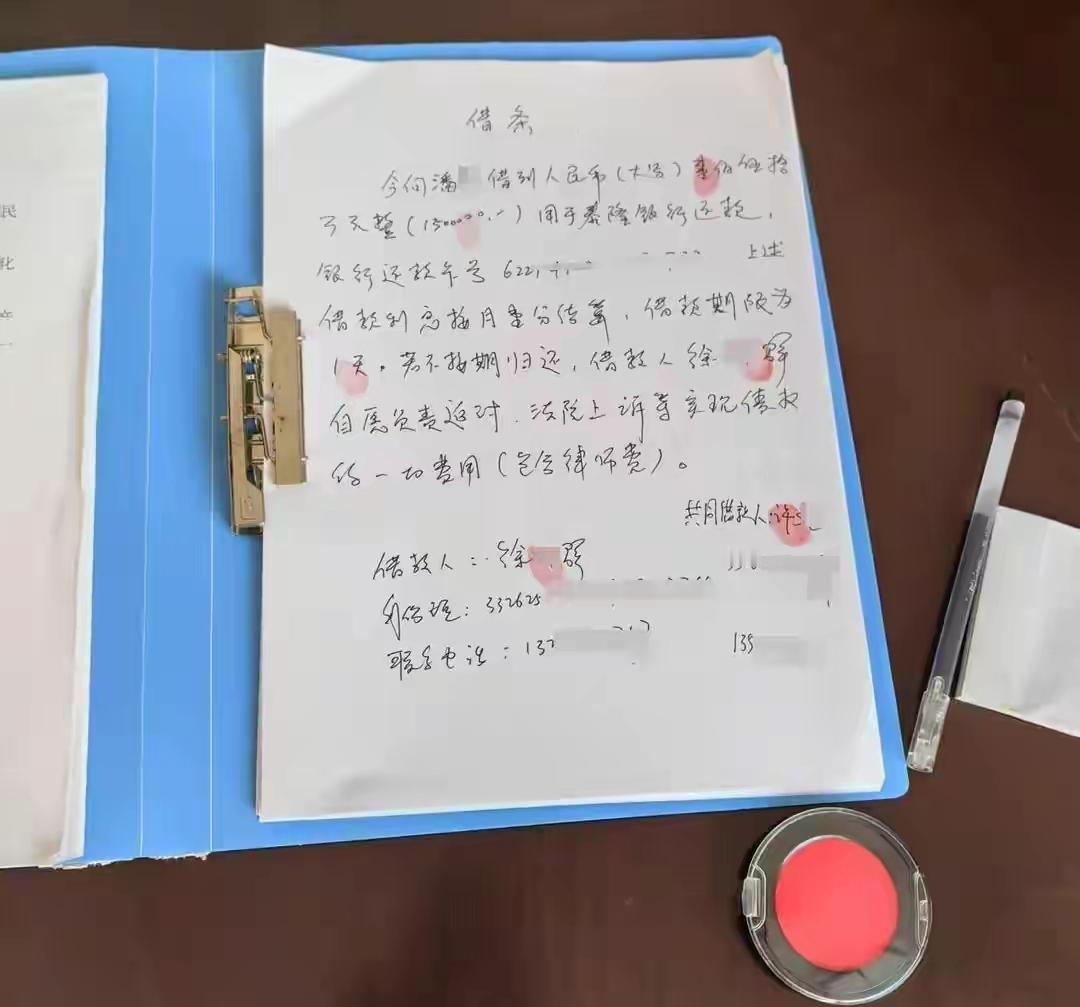 民
化
产
借条
今向潘 借到人民币(大写)壹佰伍拾
万元整(1500000.-)用于泰隆银行还款,
银行还款卡号 622 上述
借款利息按月壹分结算,借款期限为
1天。若不按期归还,借款人徐
自愿负责返还、法院上诉等实现债权
的一切费用(包含律师费)。
共同借款人:许
借款人:徐
身份证:332625
联系电话:137 135